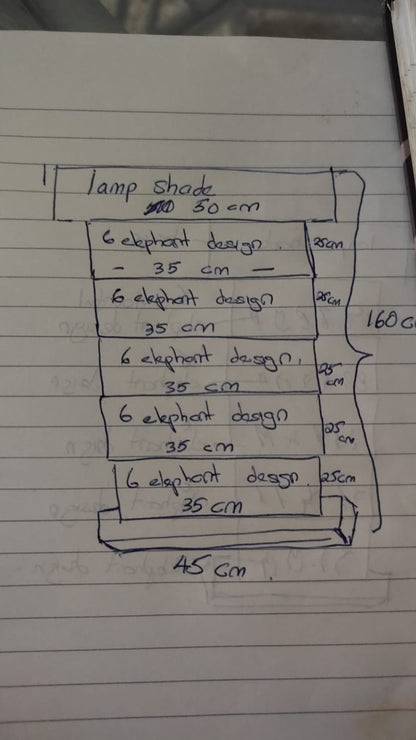 lamp shade
50 cm
6 elephant design.
25cm
- 35 cm -
6 elephant design
25cm
35 cm
160 c
6 elephant design.
25
cm
35 cm
6 elephant design
25
cm
35 cm
6 elephant design.
25cm
35 cm
45 cm.